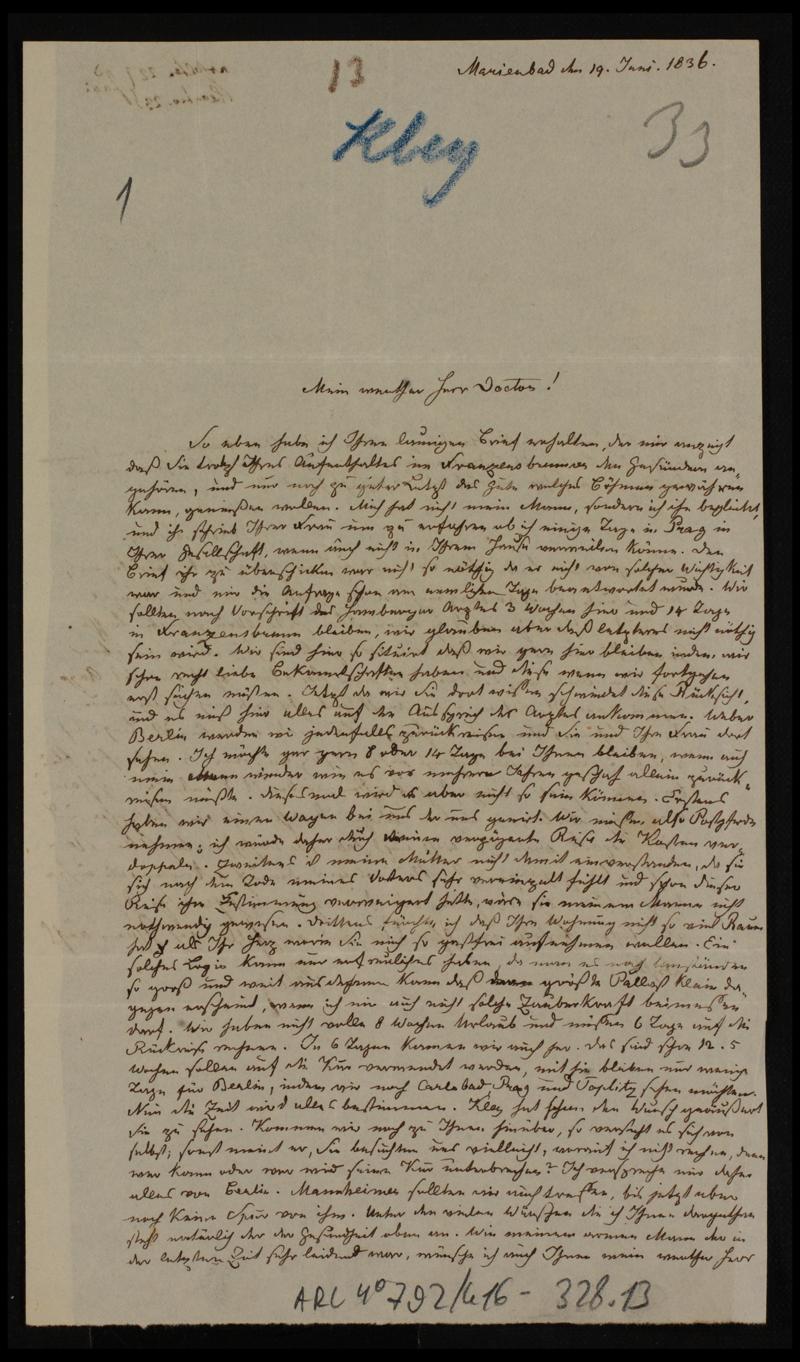 13
Marienbad den 19. Juni. 1836.
Kley
33
1
Mein werther Herr Doctor!
So eben habe ich Ihren launigen Brief erhalten, der mir anzeigt
daß Sie trotz Ihres Aufenthaltes im Franzensbrunnen den Gesündern an-
gehören, und nur noch zu guter Letzt das Gute welches Böhmen gewähren
kann, genießen wollen. Mich hat nicht mein Mann, sondern ich ihn begleitet,
und ich schrieb Ihrer Frau um zu erfahren ob ich einige Tage in Prag in
Ihrer Gesellschaft, wenn auch nicht in Ihrem Hause verweilen könne. Den
Brief ihr zu überschicken war nicht so nöthig da er nicht von solcher Wichtigkeit
war und mir die Anfrage schon am nemlichen Tage beantwortet wurde. Wir
sollten nach Vorschrift des Hamburger Arztes 3 Wochen hier und 14 Tage
in Franzensbrunn bleiben, wir glauben aber daß letzteres nicht nöthig
sein wird. Wir sind hier so situirt daß wir gern hier bleiben indem wir
schon recht liebe Bekanntschaften haben und diese wenn wir fortgehen
erst suchen müßen. Jetzt da wir Sie dort wißen schwindet diese Rücksicht,
und es muß hier alles auf den Ausspruch des Arztes ankommen. Ueber
Berlin werden wir jedenfalls zurückreisen und Sie und Ihre Frau dort
sehen. Ich möchte gar gern 8 oder 14 Tage bei Ihnen bleiben, wenn auch
mein Mann wieder wie es vor mehreren Jahren geschah allein zurück-
reisen müßte. Diesesmal wird es aber nicht so sein können. Erstens
haben wir einen Wagen bei uns der uns genirt. Wir müßen also Postpferde
nehmen; ich würde daher durch meine verzögerte Reise die Kosten ver-
doppeln. Zweitens ist meine Mutter nicht damit einverstanden, da sie
sich nach dem Tode meines Vaters sehr vereinzelt fühlt und schon dieser
Reise ihre Zustimmung verweigert hätte, wäre sie meinem Manne nicht
nothwendig gewesen. Drittens fürchte ich daß Ihre Wohnung nicht so viel Raum
hat als Ihr Herz worin Sie mich so gastfrei aufnehmen wollen. Ein
solches Logis kann nur erfreuliches haben, da man es nach
so groß und weit ausdehnen kann daß der größte Pallast klein da-
gegen erscheint, wenn ich mir auch nicht solche Zauberkraft beimeßen
darf. Wir haben nicht volle 8 Wochen Urlaub und müßen 6 Tage auf die
Rückreise rechnen. In 6 Tagen kamen wir auch her. Das sind schon 12. 5
Wochen sollen auf die Kur verwendet werden, mithin bleiben nur wenige
Tage für Berlin, indem wir noch Carlsbad, Prag und Töplitz sehen möchten.
Nun die Zeit wird alles bestimmen. Kley hat schon den Wunsch geäußert
Sie zu sehen. Kommen wir noch zu Ihnen hinüber, so versteht es sich von
selbst; sonst meint er, Sie besuchten uns vielleicht, worauf ich nicht rechne, denn
wer kann oder wer wird seine Kur unterbrechen? Ich verspreche mir daher
alles von Berlin. Mannheimer sollten wir auch treffen, bis jetzt aber
noch keine Spur von ihm. Unter den vielen Wünschen die ich Ihnen
steht natürlich der der Gesundheit oben an. Wie meinem armen Mann der in
der letzten Zeit sehr leidend war, wünsche ich auch Ihnen mein werther Herr
ARC 4° 792/416 - 328.13